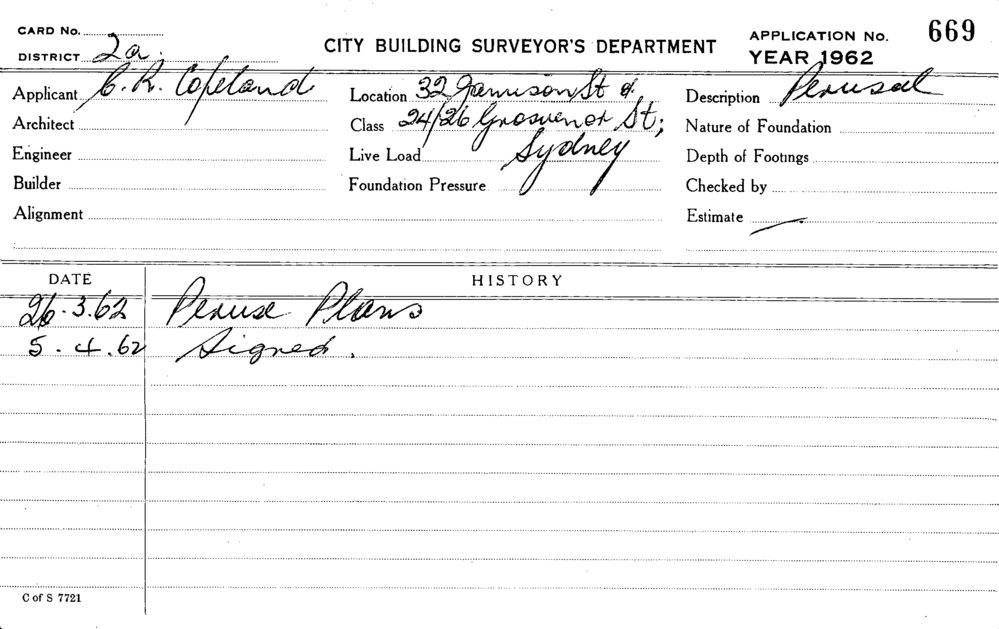 CARD No.
DISTRICT 2a.
CITY BUILDING SURVEYOR'S DEPARTMENT
APPLICATION No. 669
YEAR 1962
Applicant C. R. Copeland
Location 32 Jamison St &
Description Perusal
Architect
Class 24/26 Grosvenor St;
Nature of Foundation
Engineer
Live Load Sydney
Depth of Footings
Builder
Foundation Pressure
Checked by
Alignment
Estimate —
DATE HISTORY
26.3.62 Peruse Plans
5.4.62 Signed.
C of S 7721